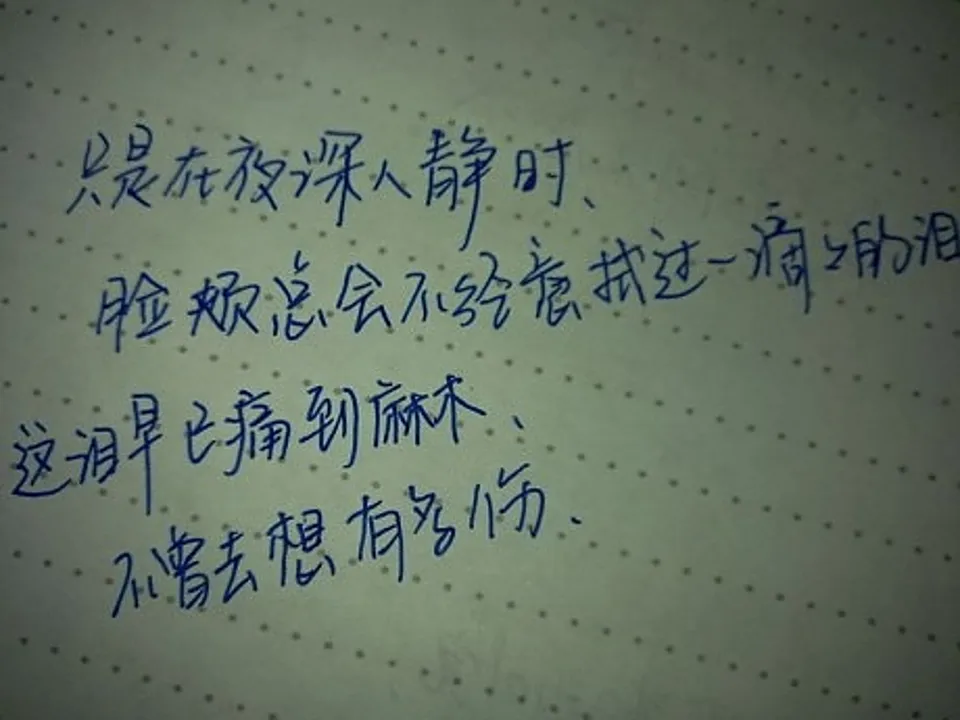 只是在夜深人静时、
脸颊总会不经意拭过一滴滴的泪
这泪早已痛到麻木、
不曾去想有多伤、